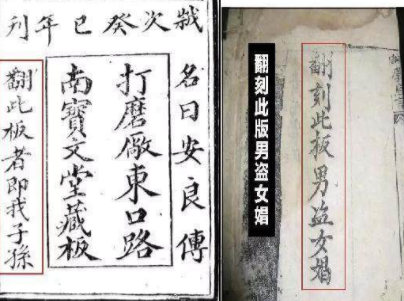 歲次癸巳年刊
名曰安良傳
打磨厰東口路
南寶文堂藏板
翻此板者即我子孫
翻刻此板男盗女娼
翻刻此版男盗女娼